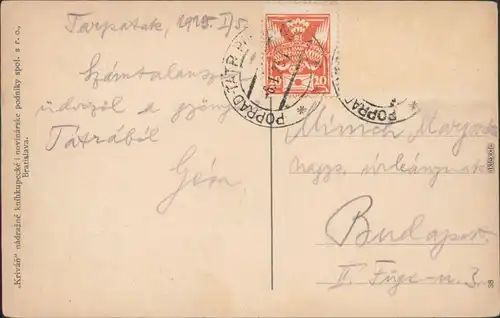 Tarpatak, 1925 I/5.
Számtalanszor
üdvözöl a gyönyörű
Tátrából
Géza
POPRAD-TATRY
20
POPRAD
Münch Margit
nagys. úrleánynak
Budapest
II. Füge-u. 3.
„Kriváň“ nádražné kníhkupecké i novinárske podniky spol. s r. o.,
Bratislava.
38